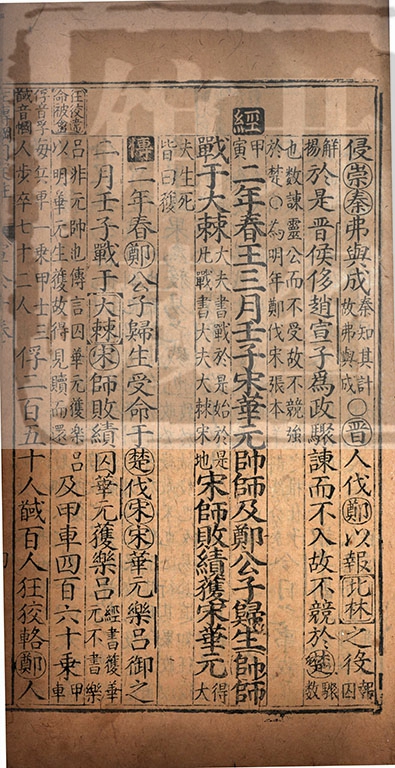 侵崇秦弗與成秦知其計故弗與成○晉人伐鄭以報北林之役報囚
解揚於是晉侯侈趙宣子為政驟諫而不入故不競於楚驟數
也數諫靈公而不受故不競強
於楚○為明年鄭伐宋張本
經甲寅二年春王三月壬子宋華元帥師及鄭公子歸生帥師
戰于大棘大夫書戰於是始於是凡戰書大夫大棘宋地宋師敗績獲宋華元得大
夫生死皆曰獲
傳二年春鄭公子歸生受命于楚伐宋宋華元樂呂御之
二月壬子戰于大棘宋師敗績囚華元獲樂呂經書獲華元不書樂
呂非元帥也傳言囚華元獲樂呂以明華元生獲故得見贖而還及甲車四百六十乘甲車
每兵車一乘甲士三人步卒七十二人俘二百五十人馘百人狂狡輅鄭人
俘音孚
馘音幗